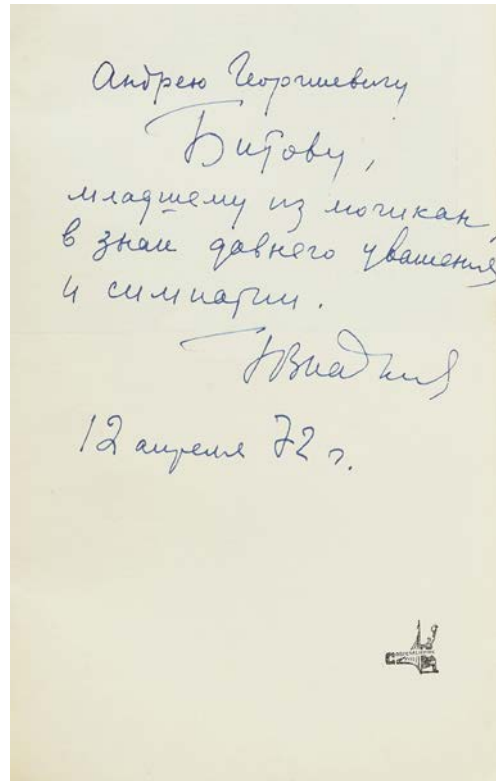 Андрею Георгиевичу
Битову,
младшему из могикан,
в знак давнего уважения
и симпатии.
12 апреля 72 г.